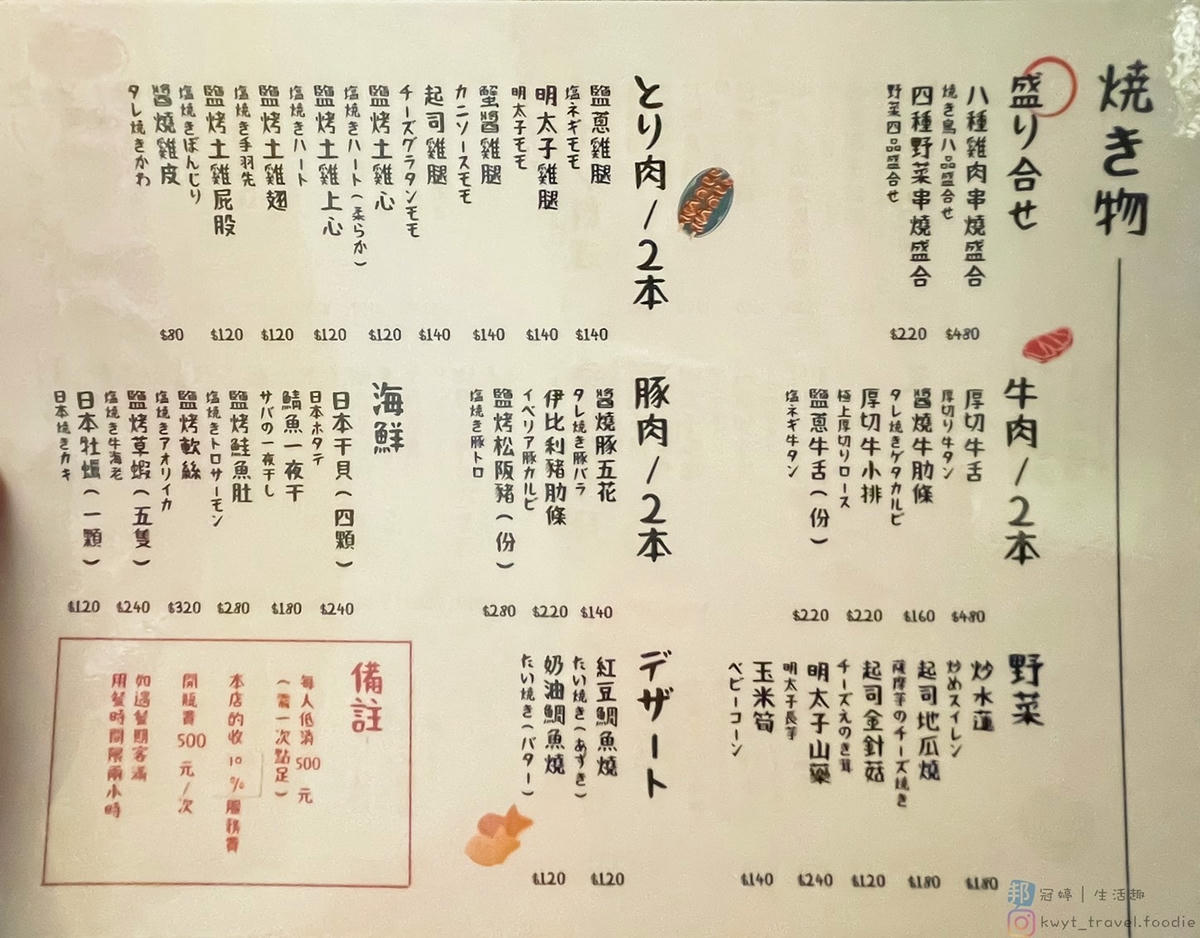 焼き物
盛り合せ
八種雞肉串燒盛合
焼き鳥八品盛合せ
$480
四種野菜串燒盛合
野菜四品盛合せ
$220
とり肉/2本
鹽蔥雞腿
塩ネギモモ
$140
明太子雞腿
明太子モモ
$140
蟹醬雞腿
カニソースモモ
$140
起司雞腿
チーズグラタンモモ
$140
鹽烤土雞心
塩焼きハート(柔らか)
$120
鹽烤土雞上心
塩焼きハート
$120
鹽烤土雞翅
塩焼き手羽先
$120
鹽烤土雞屁股
塩焼きぼんじり
$120
醬燒雞皮
タレ焼きかわ
$80
牛肉/2本
厚切牛舌
厚切り牛タン
$480
醬燒牛肋條
タレ焼きゲタカルビ
$160
厚切牛小排
極上厚切りロース
$220
鹽蔥牛舌(份)
塩ネギ牛タン
$220
豚肉/2本
醬燒豚五花
タレ焼き豚バラ
$140
伊比利豬肋條
イベリア豚カルビ
$220
鹽烤松阪豬(份)
塩焼き豚トロ
$280
海鮮
日本干貝(四顆)
日本ホタテ
$240
鯖魚一夜干
サバの一夜干し
$180
鹽烤鮭魚肚
塩焼きトロサーモン
$280
鹽烤軟絲
塩焼きアオリイカ
$320
鹽烤草蝦(五隻)
塩焼き牛海老
$240
日本牡蠣(一顆)
日本焼きカキ
$120
野菜
炒水蓮
炒めスイレン
$180
起司地瓜燒
薩摩芋のチーズ焼き
$180
起司金針菇
チーズえのき茸
$120
明太子山藥
明太子長芋
$240
玉米筍
ベビーコーン
$140
デザート
紅豆鯛魚燒
たい焼き(あずき)
$120
奶油鯛魚燒
たい焼き(バター)
$120
備註
每人低消500元
(需一次點足)
本店酌收10%服務費
開瓶費500元/次
如遇餐期客滿
用餐時間限兩小時
邦 冠婷|生活趣
kwyt_travel.foodie